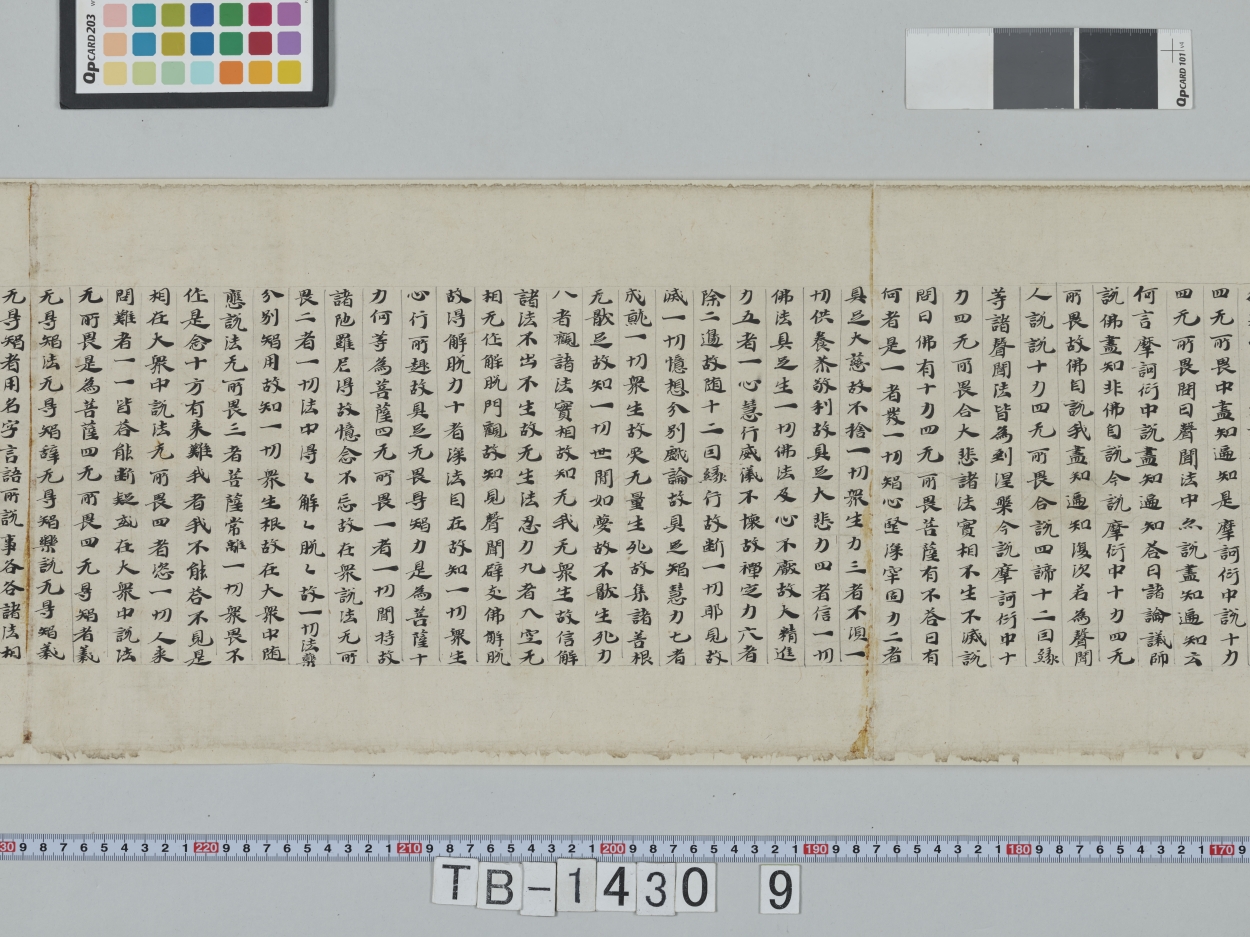 四无所畏中盡知遍知是摩訶衍中說十力
四无所畏問曰聲聞法中亦說盡知遍知云
何言摩訶衍中說盡知遍知答曰諸論議師
說佛盡知非佛自說今說摩衍中十力四无
所畏故佛自說我盡知遍知復次若為聲聞
人說說十力四无所畏合說四諦十二因緣
等諸聲聞法皆為到涅槃今說摩訶衍中十
力四无所畏合大悲諸法實相不生不滅說
問曰佛有十力四无所畏菩薩有不答曰有
何者是一者發一切智心堅深牢固力二者
具足大慈故不捨一切衆生力三者不須一
切供養恭敬利故具足大悲力四者信一切
佛法具足生一切佛法及心不厭故大精進
力五者一心慧行威儀不壞故禪定力六者
除二邊故隨十二因緣行故斷一切耶見故
滅一切憶想分別戲論故具足智慧力七者
成就一切衆生故受无量生死故集諸善根
无猒足故知一切世間如夢故不猒生死力
八者觀諸法實相故知无我无衆生故信解
諸法不出不生故无生法忍力九者入空无
相无作解脫門觀故知見聲聞辟支佛解脫
故得解脫力十者深法自在故知一切衆生
心行所趣故具足无畏㝵智力是為菩薩十
力何等為菩薩四无所畏一者一切聞持故
諸陀羅尼得故憶念不忘故在衆說法无所
畏二者一切法中得々解々脫々故一切法藥
分別知用故知一切衆生根故在大衆中隨
應說法无所畏三者菩薩常離一切衆畏不
作是念十方有來難我者我不能答不見是
相在大衆中說法无所畏四者恣一切人來
問難者一一皆答能斷疑惑在大衆中說法
无所畏是為菩薩四无所畏四无㝵智者義
无㝵智法无㝵智辭无㝵智樂說无㝵智義
无㝵智者用名字言語所說事各各諸法相
QPCARD 203
QPCARD 101 v4
30 9 8 7 6 5 4 3 2 1 220 9 8 7 6 5 4 3 2 1 210 9 8 7 6 5 4 3 2 1 200 9 8 7 6 5 4 3 2 1 190 9 8 7 6 5 4 3 2 1 180 9 8 7 6 5 4 3 2 1 170 9
TB-1430 9